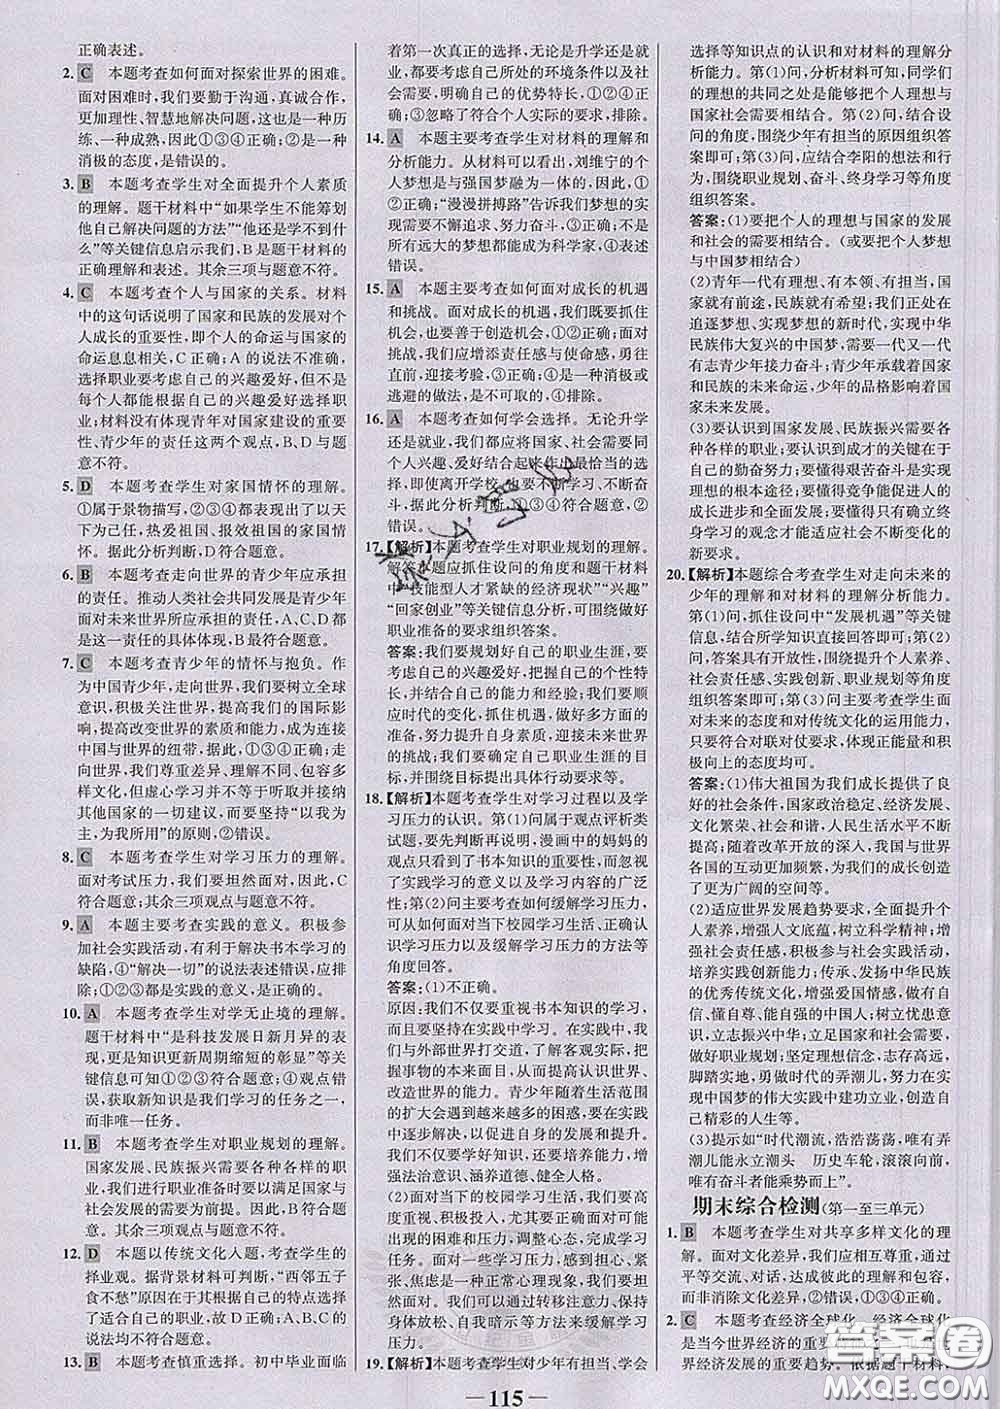 正确表述。
2. C 本题考查如何面对探索世界的困难。
面对困难时，我们要勤于沟通，真诚合作，
更加理性、智慧地解决问题，这也是一种历
练、一种成熟，因此①③④正确；②是一种
消极的态度，是错误的。
3. B 本题考查学生对全面提升个人素质
的理解。题干材料中“如果学生不能筹划
他自己解决问题的方法”“他还是学不到什
么”等关键信息启示我们，B是题干材料的
正确理解和表述。其余三项与题意不符。
4. C 本题考查个人与国家的关系。材料
中的这句话说明了国家和民族的发展对个
人成长的重要性，即个人的命运与国家的
命运息息相关，C正确；A的说法不准确，
选择职业要考虑自己的兴趣爱好，但不是
每个人都能根据自己的兴趣爱好选择到职
业；材料没有体现青年对国家建设的重要
性、青少年的责任这两个观点，B、D与题
意不符。
5. D 本题考查学生对家国情怀的理解。
①属于景物描写，②③④都表现出了以天
下为己任，热爱祖国、报效祖国的家国情
怀。据此分析判断，D符合题意。
6. B 本题考查走向世界的青少年应承担
的责任。推动人类社会共同发展是青少年
面对未来世界所应承担的责任，A、C、D都
是这一责任的具体体现，B最符合题意。
7. C 本题考查青少年的情怀与抱负。作
为中国青少年，走向世界，我们要树立全球
意识，积极关注世界，提高我们的国际影
响，提高改变世界的素质和能力，成为连接
中国与世界的纽带。据此，①③④正确；走
向世界，我们尊重差异、理解不同、包容多
样文化，但虚心学习并不等于听取并接纳
其他国家的一切建议，而要坚持“以我为
主，为我所用”的原则，②错误。
8. C 本题考查学生对学习压力的理解。
面对考试压力，我们要坦然面对，因此，C
符合题意；其余三项观点与题意不符。
9. A 本题主要考查实践的意义。积极参
加社会实践活动，有利于解决书本学习的
缺陷，④“解决一切”的说法表述错误，应排
除；①②③都是实践的意义，是正确的。
10. A 本题考查学生对学无止境的理解。
题干材料中“是科技发展日新月异的表
现，更是知识更新周期缩短的彰显”等关
键信息可知①②③符合题意；④观点错
误，获取新知识是我们学习的任务之一，
而非唯一任务。
11. B 本题考查学生对职业规划的理解。
国家发展、民族振兴需要各种各样的职
业，我们进行职业准备时要以满足国家与
社会的需要为前提。因此，B符合题意。
其余三项观点与题意不符。
12. D 本题以传统文化入题，考查学生的
择业观。据背景材料可判断，“西邻五子
食不愁”原因在于根据自己的特点选择了
适合自己的职业，故D正确；A、B、C的
说法均不符合题意。
13. B 本题考查慎重选择。初中毕业面临
着第一次真正的选择，无论是升学还是就
业，都要考虑自己所处的环境条件以及社
会需要，明确自己的优势特长，①②④正
确；③忽略了符合个人实际的要求，排除。
14. A 本题主要考查学生对材料的理解和
分析能力。从材料可以看出，刘维宁的个
人梦想是与强国梦融为一体的，因此，①
②正确；“漫漫拼搏路”告诉我们梦想的实
现需要不懈追求、努力奋斗，③正确；不是
所有远大的梦想都能成为科学家，④表述
错误。
15. A 本题主要考查如何面对成长的机遇
和挑战。面对成长的机遇，我们既要抓住
机会，也要善于创造机会，①②正确；面对
挑战，我们应增添责任感与使命感，勇往
直前，迎接考验，③正确；④是一种消极或
逃避的做法，是不可取的，④排除。
16. A 本题考查如何学会选择。无论升学
还是就业，我们都应将国家、社会需要同
个人兴趣、爱好结合起来作出最恰当的选
择，即使离开学校，也要不断学习、不断奋
斗，据此分析判断，①③④符合题意，
②错误。
17.【解析】本题考查学生对职业规划的理解。
解答本题应抓住设问的角度和题干材料
中“技能型人才紧缺的经济现状”“兴趣”
“回家创业”等关键信息分析，可围绕做好
职业准备的要求组织答案。
答案：我们要规划好自己的职业生涯，要
考虑自己的兴趣爱好，把握自己的个性特
长，并结合自己的能力和经验；我们要顺
应时代的变化，抓住机遇，做好多方面的
准备，努力提升自身素质，迎接未来世界
的挑战；我们要确定自己职业生涯的目
标，并围绕目标提出具体行动要求等。
18.【解析】本题考查学生对学习过程以及学
习压力的认识。第(1)问属于观点评析类
试题，要先判断再说明，漫画中的妈妈的
观点只看到了书本知识的重要性，而忽视
了实践学习的意义以及学习内容的广泛
性；第(2)问主要考查如何缓解学习压力，
可以从如何面对当下校园学习生活、正确认
识学习压力以及缓解学习压力的方法等
角度回答。
答案：(1)不正确。
原因：我们不仅要重视书本知识的学习，
而且要坚持在实践中学习。在实践中，我
们与外部世界打交道，了解客观实际，把
握事物的本来面目，从而提高认识世界、
改造世界的能力。青少年随着生活范围
的扩大会遇到越来越多的问题，努力解决
这些问题，可以促进自身的发展和提高。
我们不仅要学好知识，还要培养能力，增
强法治意识、涵养道德、健全人格。
(2)面对当下的校园学习生活，我们要高
度重视、积极投入，尤其要坦然面对可能
出现的困难和压力，调整心态，保持自信；
面对一些重要的学习任务，出现担心、紧
张、焦虑是一种正常心理现象，我们要及
时、合理地通过交流、转移注意力、保持
身体放松、自我暗示等方法缓解自己的
压力。
19.【解析】本题考查学生对少年有担当、学会
选择等知识点的认识和对材料的理解分
析能力。第(1)问，分析材料可知，同学们
的理想的共同之处是要把个人的理想与
国家和社会需要相结合；第(2)问，结合设
问的角度，围绕少年有担当的原因组织答
案即可；第(3)问，应结合李阳的想法和行
为，围绕职业规划、奋斗、终身学习等角度
组织答案。
答案：(1)要把个人的理想与国家的发展
和社会的需要相结合。(或要把个人梦想
与中国梦相结合)
(2)青年一代有理想、有本领、有担当，国
家就有前途，民族就有希望；我们正处在
追逐梦想、实现梦想的新时代，实现中华
民族伟大复兴的中国梦，需要一代又一代
有志青年接力奋斗；青少年承载着国家
和民族的未来命运，少年的品格影响着国
家未来发展。
(3)要认识到国家发展、民族振兴，需要各
种各样的职业；要认识到成才的关键在于
自己的勤奋努力；要懂得艰苦奋斗是实现
理想的根本途径；要懂得竞争能促进人的
成长进步和全面发展；要懂得只有确立终
身学习的观念才能适应社会不断变化的
新要求。
20.【解析】本题综合考查学生对走向未来的
少年的理解和对材料的理解分析能力。第
(1)问，抓住设问中“发展机遇”等关键
信息，结合所学知识直接回答即可；第(2)
问，答案具有开放性，围绕提升个人素养、
社会责任感、实践创新、职业规划等角度
组织答案即可；第(3)问主要考查学生面
对未来的态度和对传统文化的运用能力，
只要符合对联对仗要求，体现正能量和积
极向上的态度均可。
答案：(1)伟大祖国为我们成长提供了良
好的社会条件，国家政治稳定、经济发展、
文化繁荣、社会和谐，人民生活水平不断
提高；随着改革开放的深入，我国与世界
各国的互动更加频繁，为我们的成长创造
了更为广阔的空间等。
(2)适应世界发展趋势要求，全面提升个
人素养，增强人文底蕴，树立科学精神；增
强社会责任感，积极参与社会生活实践，
培养实践创新能力；传承、发扬中华民族
的优秀传统文化，增强爱国情感，做有自
信、懂自尊、能自强的中国人；树立忧患意
识，立志振兴中华；立足国家和社会需要，
做好职业规划；坚定理想信念，志存高远，
脚踏实地，勇做时代的弄潮儿，努力在实
现中国梦的伟大实践中建功立业，创造自
己精彩的人生等。
(3)提示如“时代潮流，浩浩荡荡，唯有弄
潮儿能永立潮头 历史车轮，滚滚向前，
唯有奋斗者能乘势而上”。
期末综合检测(第一至三单元)
1. B 本题考查学生对共享多样文化的理
解。面对文化差异，我们应相互尊重，通过
平等交流、对话，达成彼此的理解和包容，
而非消除文化差异，②错误，①③④正确。
2. C 本题考查经济全球化。经济全球化
是当今世界经济的重要
界经济发展的重要趋势。依据题干材料，
— 115 —
答案圈
MXQE.COM